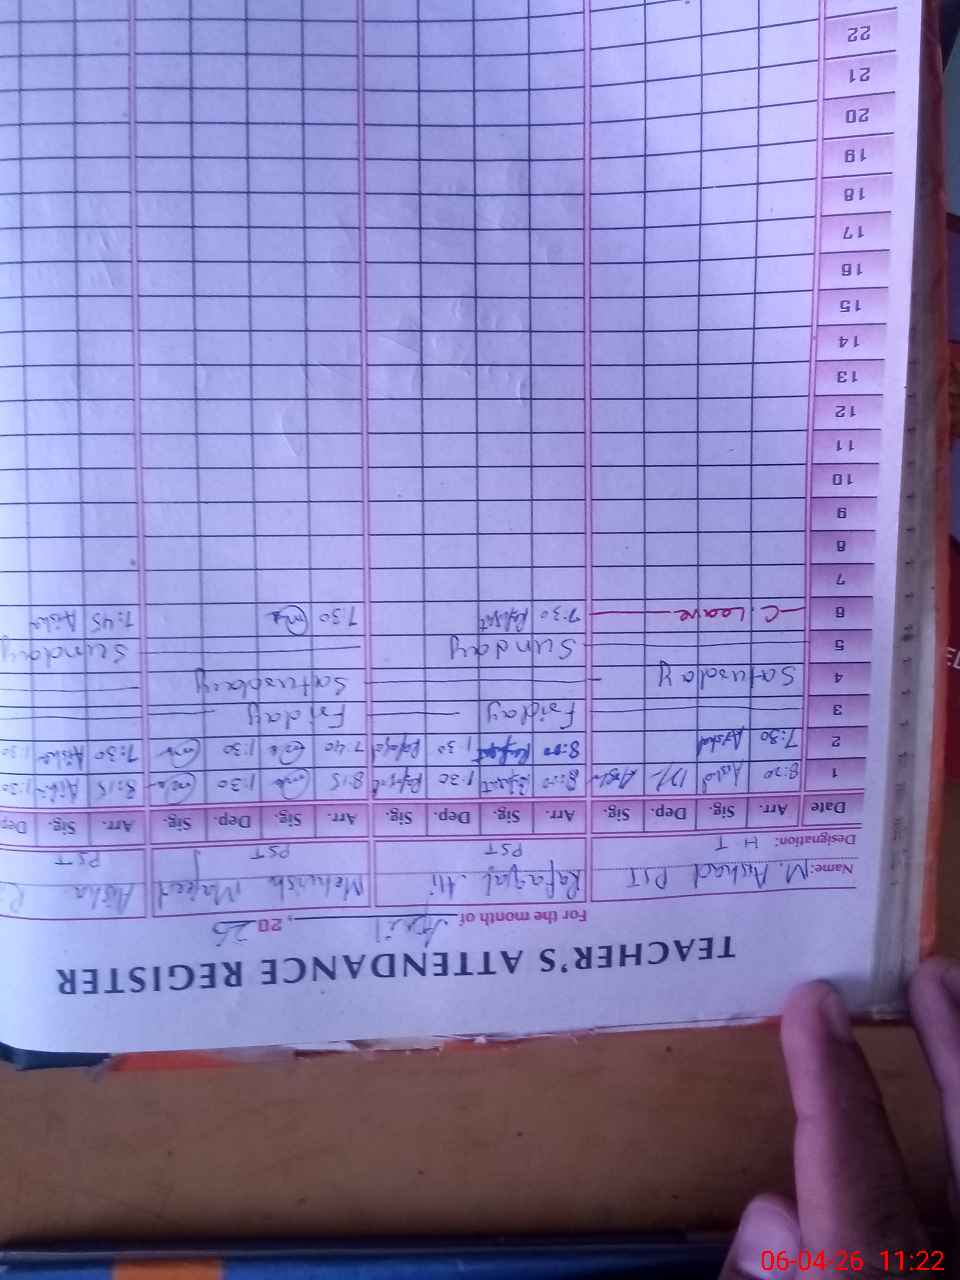 TEACHER'S ATTENDANCE REGISTER
For the month of April, 2026
Name: M. Arshad PST Rafaqat Ali Mehwish Majeed Aisha
Designation: H T PST PST PST
Date Arr. Sig. Dep. Sig. Arr. Sig. Dep. Sig. Arr. Sig. Dep. Sig. Arr. Sig. Dep
1 8:00 Arshad Arshad 8:00 Rafaqat 1:30 Rafaqat 8:15 1:30 8:15 Aisha 1:30
2 7:30 Arshad 8:00 Rafaqat 1:30 Rafaqat 7:40 1:30 7:30 Aisha 1:30
3 Friday Friday
4 Saturday Saturday
5 Sunday Sunday
6 C. Leave 7:30 Rafaqat 7:30 7:45 Aisha
7
8
9
10
11
12
13
14
15
16
17
18
19
20
21
22
06-04-26 11:22